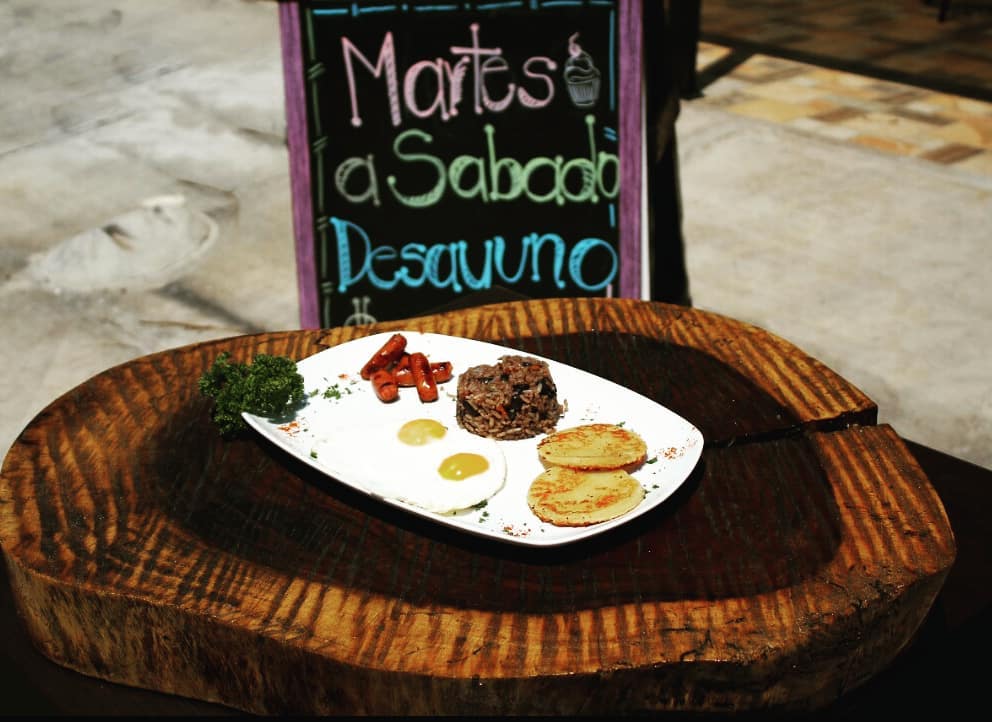 Martes
a Sabado
Desayuno